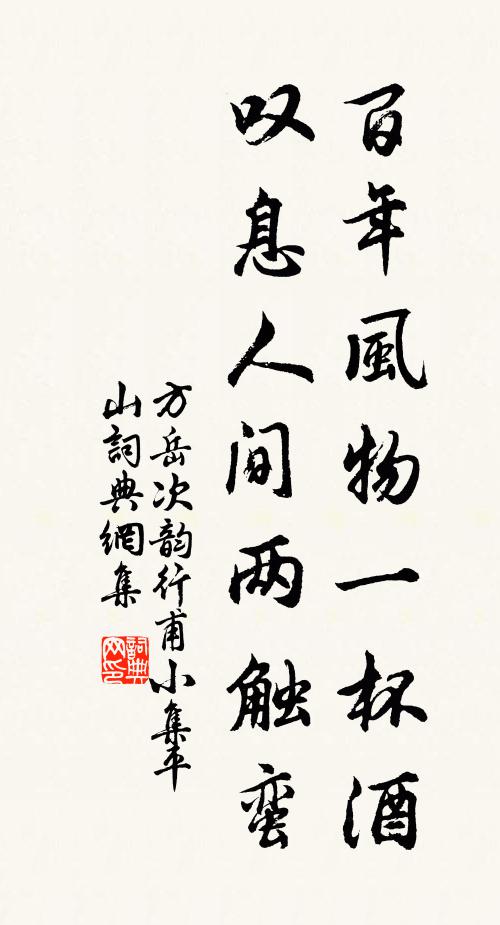 百年風物一杯酒
叹息人间两触蛮
方岳次韵行甫小集平
山詞典網集
詞典网印